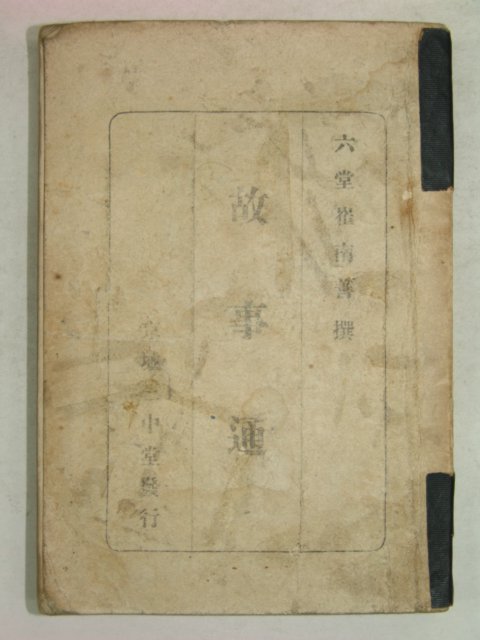 六堂崔南善撰
故事通
京城三中堂發行